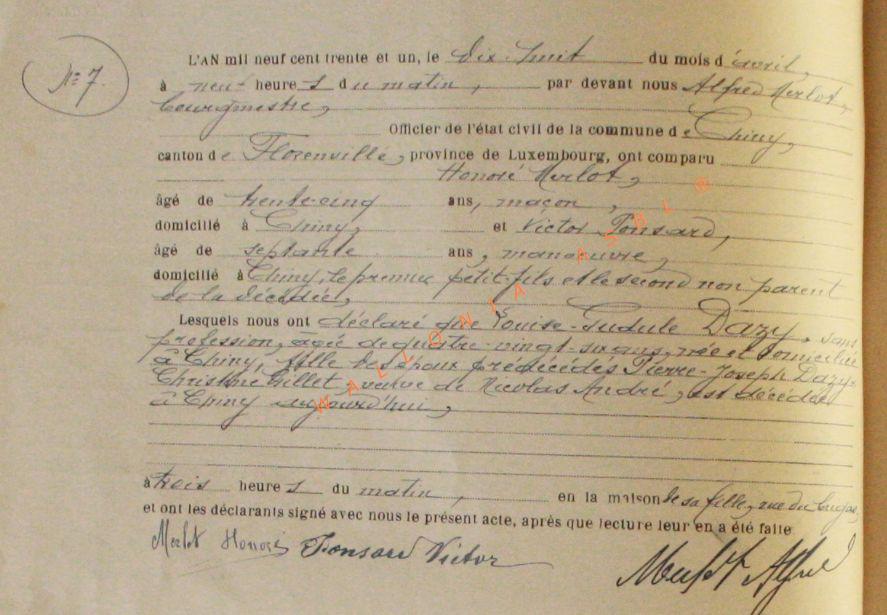 N° 7.
L'AN mil neuf cent trente et un, le dix-huit du mois d'avril,
à neuf heures du matin, par devant nous Alfred Merlot,
bourgmestre,
Officier de l'état civil de la commune de Chiny,
canton de Florenville, province de Luxembourg, ont comparu
Honoré Merlot,
âgé de trente-cinq ans, maçon,
domicilié à Chiny, et Victor Ponsard,
âgé de septante ans, manoeuvre,
domicilié à Chiny, le premier petit-fils et le second non parent
de la décédée,
Lesquels nous ont déclaré que Louise-Gudule Dazy, sans
profession, âgée de quatre-vingt-six ans, née et domiciliée
à Chiny, fille des époux prédécédés Pierre-Joseph Dazy-
Christine Gillet, veuve de Nicolas André, est décédée
à Chiny aujourd'hui,
à trois heures du matin, en la maison de sa fille, rue du
et ont les déclarants signé avec nous le présent acte, après que lecture leur en a été faite
Merlot Honoré Ponsard Victor
Merlot Alfred
WALLONIA ASBL ©